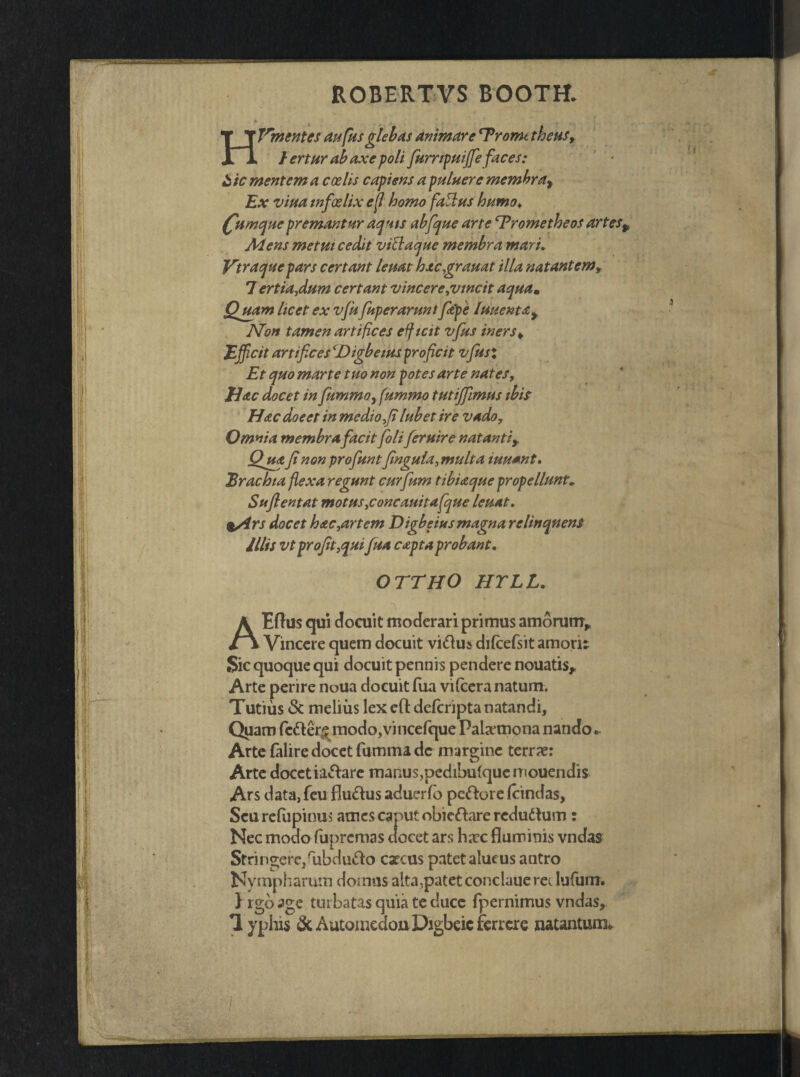 ROBERTVS BOOTH.
HVmentes ausus glebas animare Prometheus,
Fertur ab axe poli surripuisse faces:
Sic mentem a cœlis capiens a puluere membra,
Ex viua infœlix est homo factus humo.
Cumque premantur aquis absque arte Prometheos artes,
Mens metui cedit victaque membra mari.
Vtraque pars certant leuat hæc, grauat illa natantem,
Tertia, dum certant vincere, vincit aqua.
Quam licet ex vsu superarunt sæpè Iuuentæ,
Non tamen artifices efficit vsus iners,
Efficit artifices Digbeius proficit vsus:
Et quo marte tuo non potes arte nates,
Hæc docet in summo, summo tutissimus ibis
Hæc docet in medio, si lubet ire vado,
Omnia membra facit soli seruire natanti,
Quæ si non prosunt singula, multa iuuant.
Brachia flexa regunt cursum tibiæque propellunt.
Sustentat motus, concauitasque leuat.
Ars docet hæc, artem Digbeius magna relinquens
Illis vt prosit, qui sua cæpta probant.
OTTHO HYLL.
AEstus qui docuit moderari primus amorum,
Vincere quem docuit victus discessit amori:
Sic quoque qui docuit pennis pendere nouatis,
Arte perire noua docuit sua viscera natum.
Tutiùs & meliùs lex est descripta natandi,
Quam sctêrq; modo, vincesque Palæmona nando.
Arte salire docet summa de margine terræ:
Arte docet iactare manus, pedibusque mouendis
Ars data, seu fluctus aduerso pectore scindas,
Seu resupinus ames caput obiectare reductum:
Nec modo supremas docet ars hæc fluminis vndas
Stringere, subducto cæcus patet alueus antro
Nympharum domus alta, patet conclaue relusum.
Ergò age turbatas quià te duce spernimus vndas,
Typhis & Automedon Digbeie ferrere natantum.